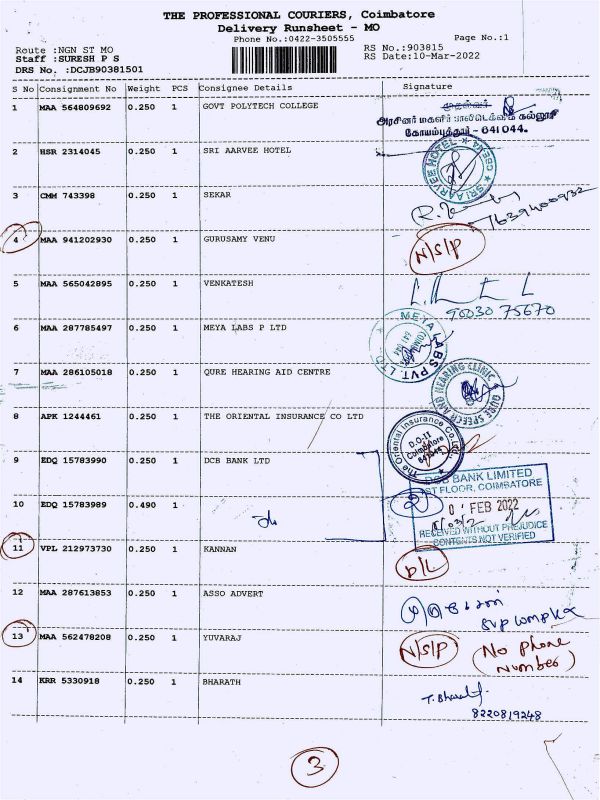 THE PROFESSIONAL COURIERS, Coimbatore
Delivery Runsheet - MO
Phone No.:0422-3505555
Page No.:1
Route :NGN ST MO
RS No.:903815
Staff :SURESH P S
RS Date:10-Mar-2022
DRS No. :DCJB90381501
S No Consignment No Weight PCS Consignee Details Signature
1 MAA 564809692 0.250 1 GOVT POLYTECH COLLEGE
முதல்வர்
அரசினர் மகளிர் பாலிடெக்னிக் கல்லூரி
கோயம்புத்தூர் - 641044.
2 HSR 2314045 0.250 1 SRI AARVEE HOTEL
SRI AARVEE HOTEL
3 CMM 743398 0.250 1 SEKAR
7639400932
4 MAA 941202930 0.250 1 GURUSAMY VENU
N/S/P
5 MAA 565042895 0.250 1 VENKATESH
90030 75670
6 MAA 287785497 0.250 1 MEYA LABS P LTD
MEYA LABS PVT LTD
7 MAA 286105018 0.250 1 QURE HEARING AID CENTRE
QURE SPEECH AND HEARING CLINIC
8 APK 1244461 0.250 1 THE ORIENTAL INSURANCE CO LTD
The Oriental Insurance Co. Ltd.
D.O.II
Coimbatore
641045
9 EDQ 15783990 0.250 1 DCB BANK LTD
DCB BANK LIMITED
1ST FLOOR, COIMBATORE
10 EDQ 15783989 0.490 1
2
01 FEB 2022
RECEIVED WITHOUT PREJUDICE
CONTENTS NOT VERIFIED
11 VPL 212973730 0.250 1 KANNAN
D/L
12 MAA 287613853 0.250 1 ASSO ADVERT
13 MAA 562478208 0.250 1 YUVARAJ
N/S/P (No phone
number)
14 KRR 5330918 0.250 1 BHARATH
T. Bharath
8220819248
3